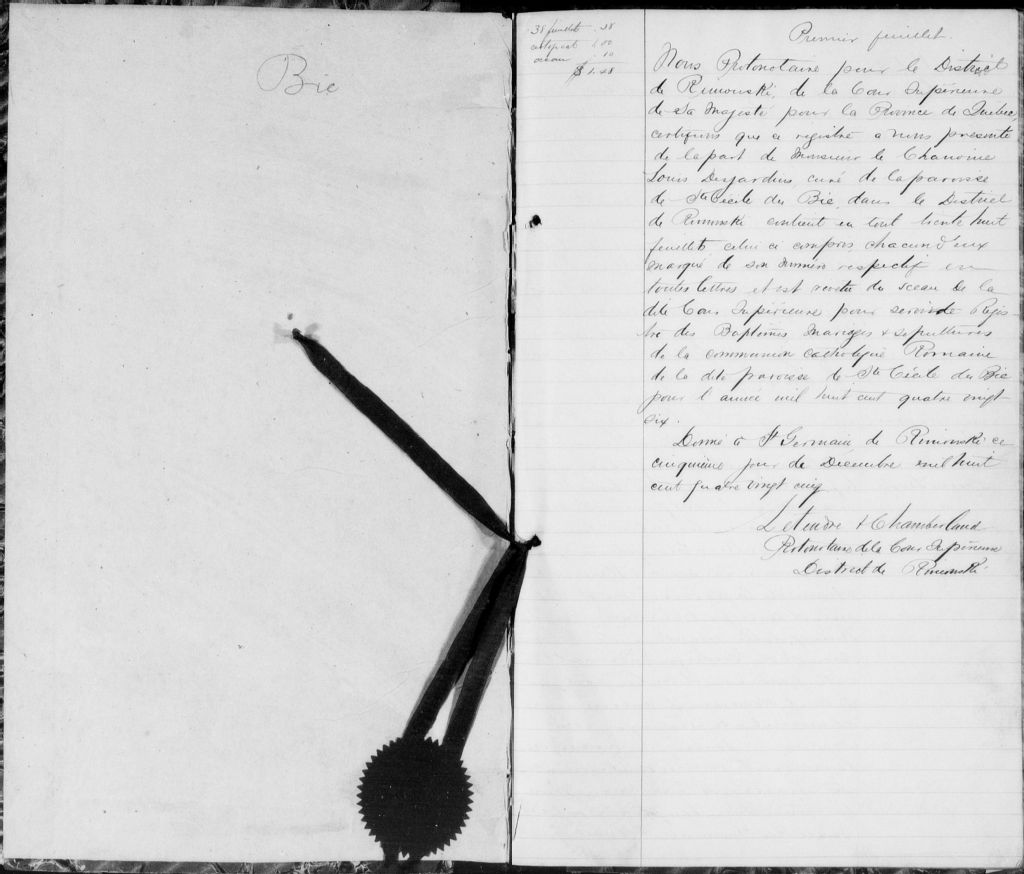 Bic
38 feuillets .38
certificat 1.00
sceau .10
$1.48
Premier feuillet.
Nous Protonotaire pour le District
de Rimouski, de la Cour Supérieure
de Sa Majesté pour la Province de Québec,
certifions que ce registre a nous présenté
de la part de Monsieur le Chanoine
Louis Desjardins, curé de la paroisse
de Ste Cécile du Bic, dans le District
de Rimouski contient en tout trente huit
feuillets celui ci compris chacun d'eux
marqué de son numéro respectif en
toutes lettres et est revetu du sceau de la
dite Cour Supérieure pour servir de Regis-
tre des Baptêmes Mariages & sepultures
de la communion catholique Romaine
de la dite paroisse de Ste Cécile du Bic
pour l'année mil huit cent quatre vingt
six.
Donné à St Germain de Rimouski ce
cinquième jour de Décembre mil huit
cent quatre vingt cinq
Letendre & Chamberland
Protonotaire de la Cour Supérieure
District de Rimouski